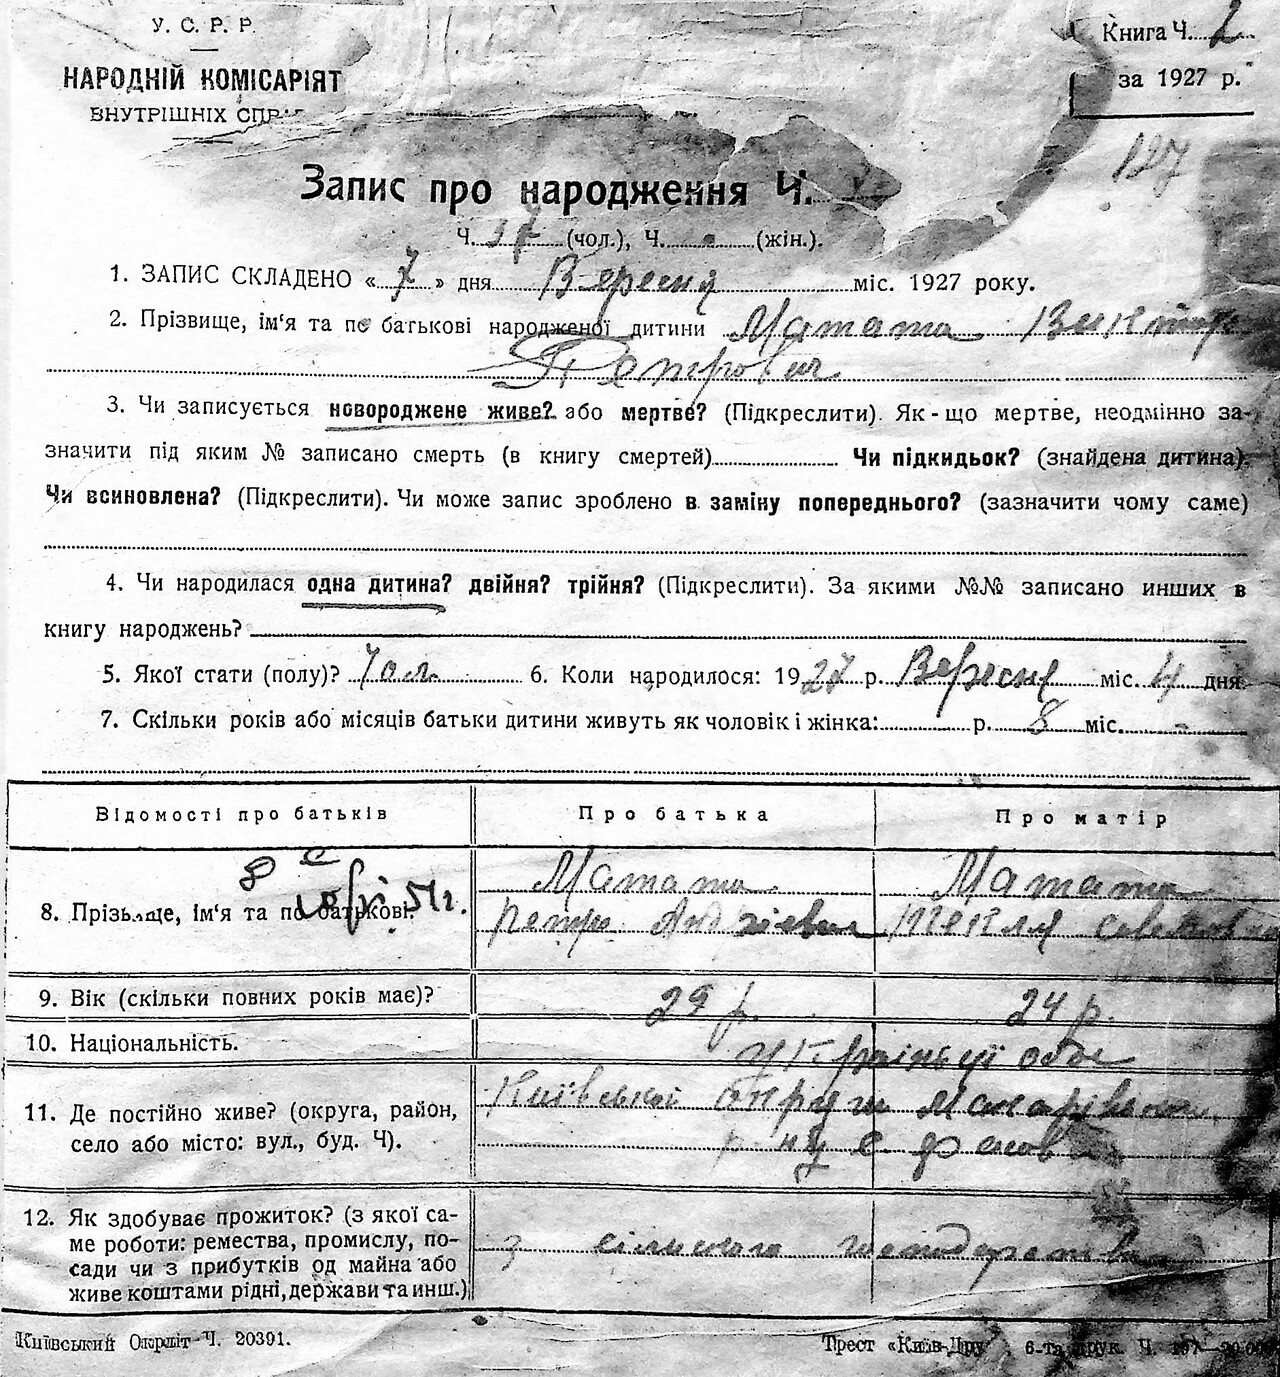 У. С. Р. Р.
НАРОДНІЙ КОМІСАРІЯТ
ВНУТРІШНІХ СПР
Книга Ч. 2
за 1927 р.
127
Запис про народження Ч.
Ч. 37 (чол.), Ч. (жін.).
1. ЗАПИС СКЛАДЕНО « 7 » дня Вересня міс. 1927 року.
2. Прізвище, ім‘я та по батькові народженої дитини Матата Виктор
Петрович
3. Чи записується новороджене живе? або мертве? (Підкреслити). Як-що мертве, неодмінно за-
значити під яким № записано смерть (в книгу смертей) Чи підкидьок? (знайдена дитина).
Чи всиновлена? (Підкреслити). Чи може запис зроблено в заміну попереднього? (зазначити чому саме)
4. Чи народилася одна дитина? двійня? трійня? (Підкреслити). За якими №№ записано инших в
книгу народжень?
5. Якої стати (полу)? Чол. 6. Коли народилося: 1927 р. Вересня міс. 4 дня.
7. Скільки років або місяців батьки дитини живуть як чоловік і жінка: р. 8 міс. -
Відомості про батьків Про батька Про матір
8. Прізвище, ім‘я та по батькові. 51г. Матата Матата
Петро Андрієвич Текля
9. Вік (скільки повних років має)? 29 р. 24 р.
10. Національність. Українці обоє
11. Де постійно живе? (округа, район,
село або місто: вул., буд. Ч). Київської округи Макарівськ
р-ну с.
12. Як здобуває прожиток? (з якої са-
ме роботи: ремества, промислу, по-
сади чи з прибутків од майна або
живе коштами рідні, держави та инш.) з сільського господарства
Київський Окрліт Ч. 20391.
Трест «Київ-Дру 6-та друк. Ч.